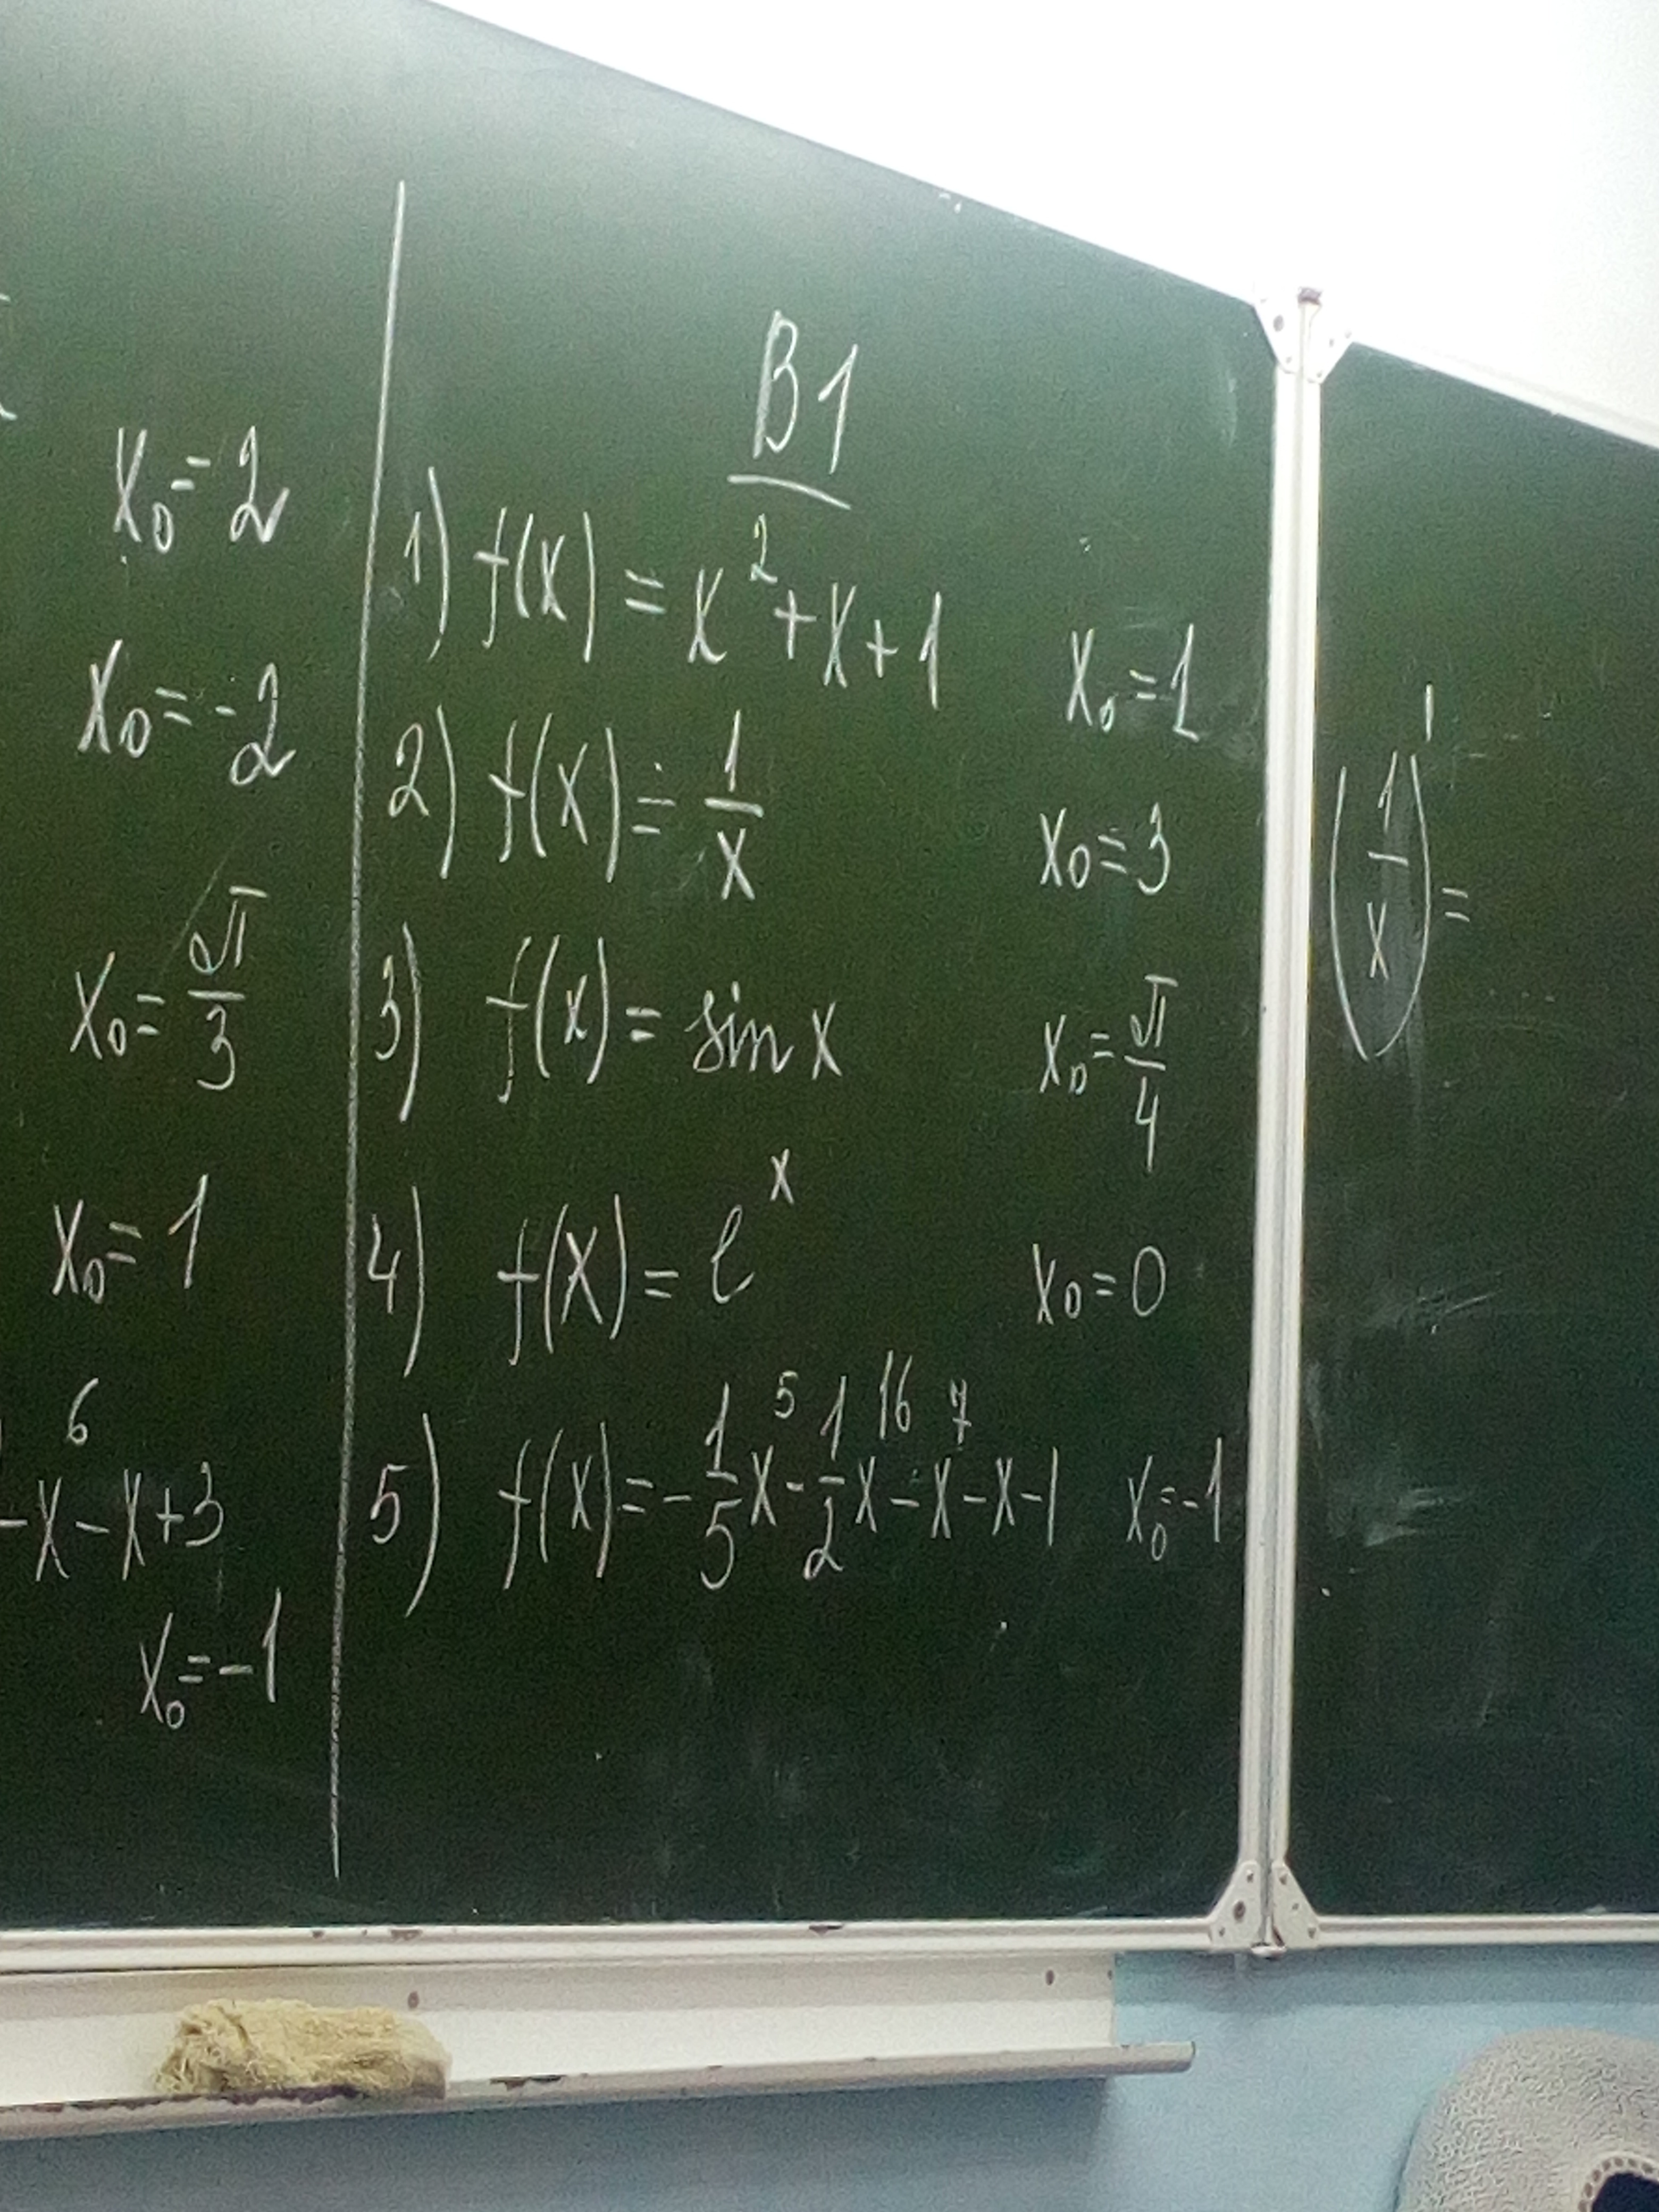 x₀ = 2
x₀ = -2
x₀ = π/3
x₀ = 1
6
-x - x + 3
x₀ = -1
B1
1) f(x) = x² + x + 1 x₀ = 1
2) f(x) = 1/x x₀ = 3
3) f(x) = sin x x₀ = π/4
4) f(x) = eˣ x₀ = 0
5) f(x) = -1/5 x⁵ - 1/2 x¹⁶ - x⁷ - x - 1 x₀ = -1
(1/x)' =